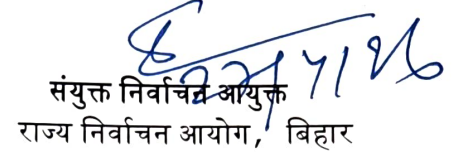 संयुक्त निर्वाचन आयुक्त
राज्य निर्वाचन आयोग, बिहार